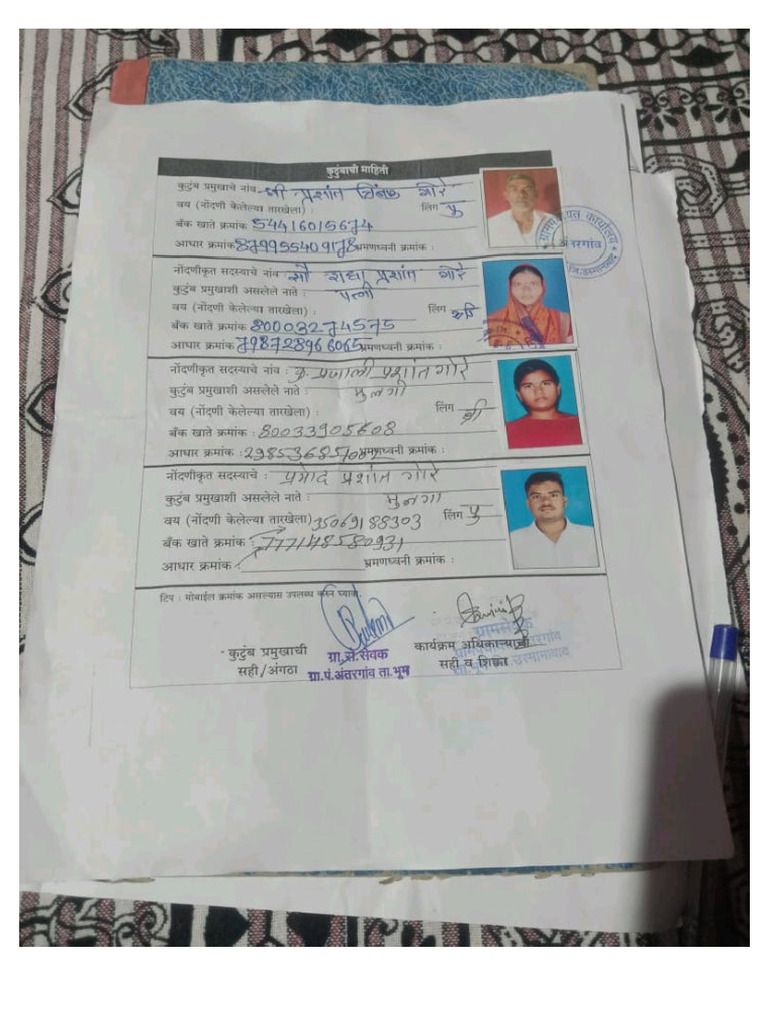 कुटुंबाची माहिती
कुटुंब प्रमुखाचे नांव - श्री प्रशांत त्रिंबक गोरे
वय (नोंदणी केलेल्या तारखेला) : लिंग पु
बँक खाते क्रमांक 54416015674
आधार क्रमांक 879955409178 भ्रमणध्वनी क्रमांक :
ग्रामपंचायत कार्यालय अंतरगांव जि.उस्मानाबाद
नोंदणीकृत सदस्याचे नांव : सौ राधा प्रशांत गोरे
कुटुंब प्रमुखाशी असलेले नाते : पत्नी
वय (नोंदणी केलेल्या तारखेला) : लिंग स्त्री
बँक खाते क्रमांक 80003274575
आधार क्रमांक 798728966065 भ्रमणध्वनी क्रमांक :
नोंदणीकृत सदस्याचे नांव : कु प्रणाली प्रशांत गोरे
कुटुंब प्रमुखाशी असलेले नाते : मुलगी
वय (नोंदणी केलेल्या तारखेला) : लिंग स्त्री
बँक खाते क्रमांक : 80033905608
आधार क्रमांक : भ्रमणध्वनी क्रमांक :
नोंदणीकृत सदस्याचे : प्रमोद प्रशांत गोरे
कुटुंब प्रमुखाशी असलेले नाते : मुलगा
वय (नोंदणी केलेल्या तारखेला) 35069188303 लिंग पु
बँक खाते क्रमांक : 777148580931
आधार क्रमांक : भ्रमणध्वनी क्रमांक :
टिप : मोबाईल क्रमांक असल्यास उपलब्ध करुन घ्यावा.
कुटुंब प्रमुखाची
सही/अंगठा
ग्रा.से.सेवक
ग्रा.पं.अंतरगांव ता.भूम
कार्यक्रम अधिकाऱ्याची
सही व शिक्का
ग्रामसेवक